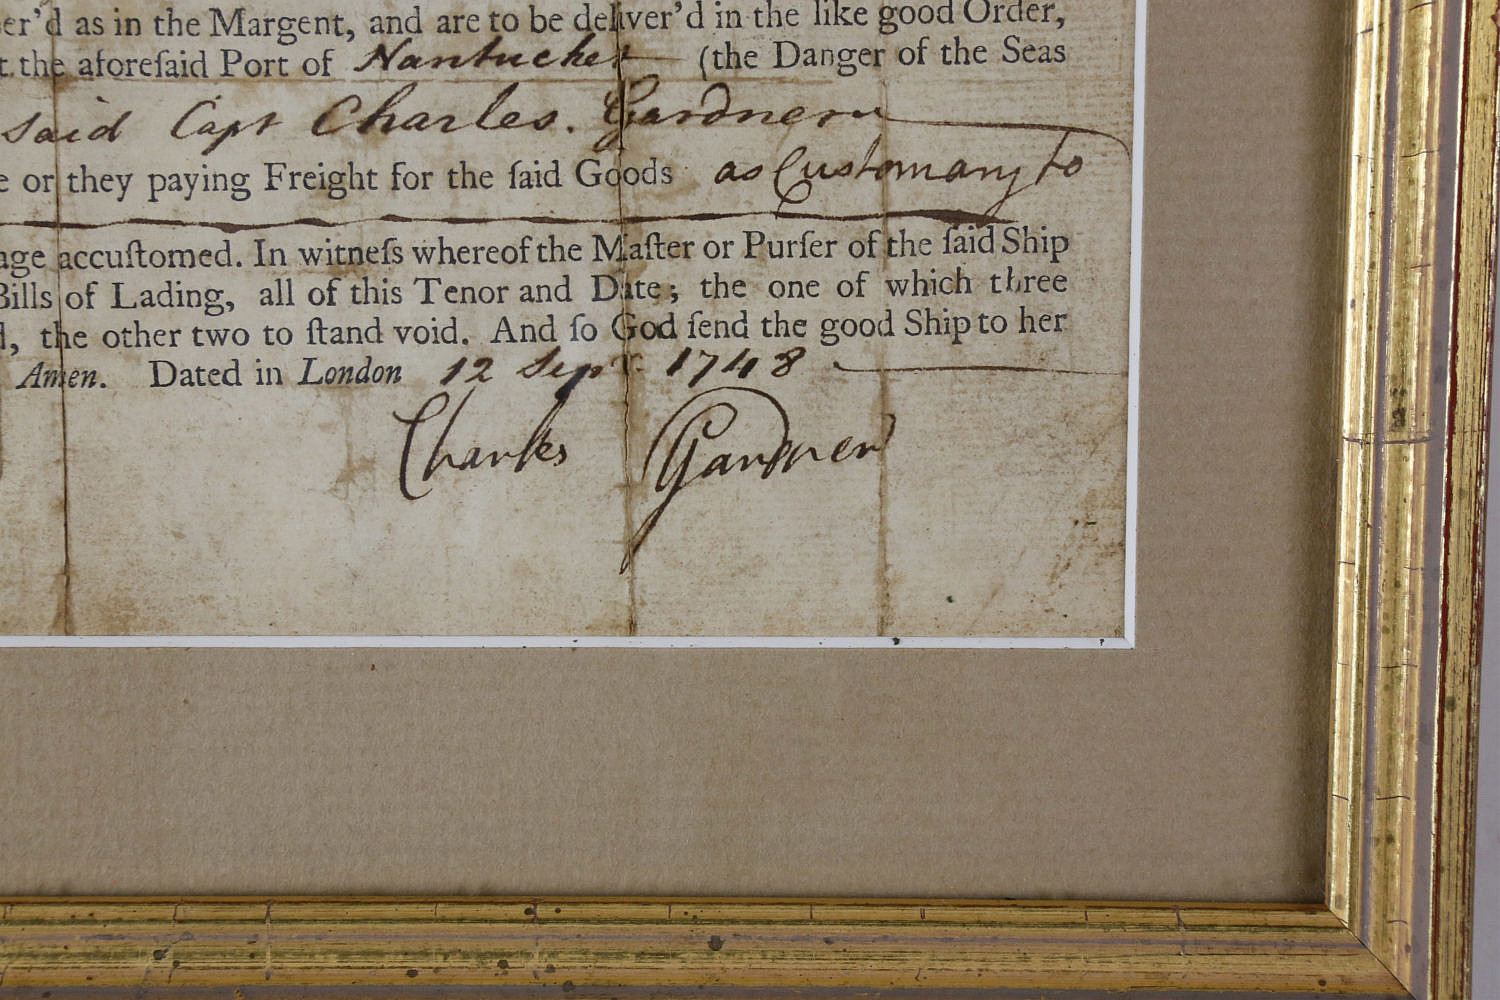 er'd as in the Margent, and are to be deliver'd in the like good Order,
t the aforeſaid Port of Nantucket (the Danger of the Seas
said Capt Charles. Gardner
e or they paying Freight for the ſaid Goods as Customary to
age accuſtomed. In witneſs whereof the Maſter or Purſer of the ſaid Ship
Bills of Lading, all of this Tenor and Date; the one of which three
d, the other two to ſtand void. And ſo God ſend the good Ship to her
Amen. Dated in London 12 Sepr. 1748
Charles Gardner